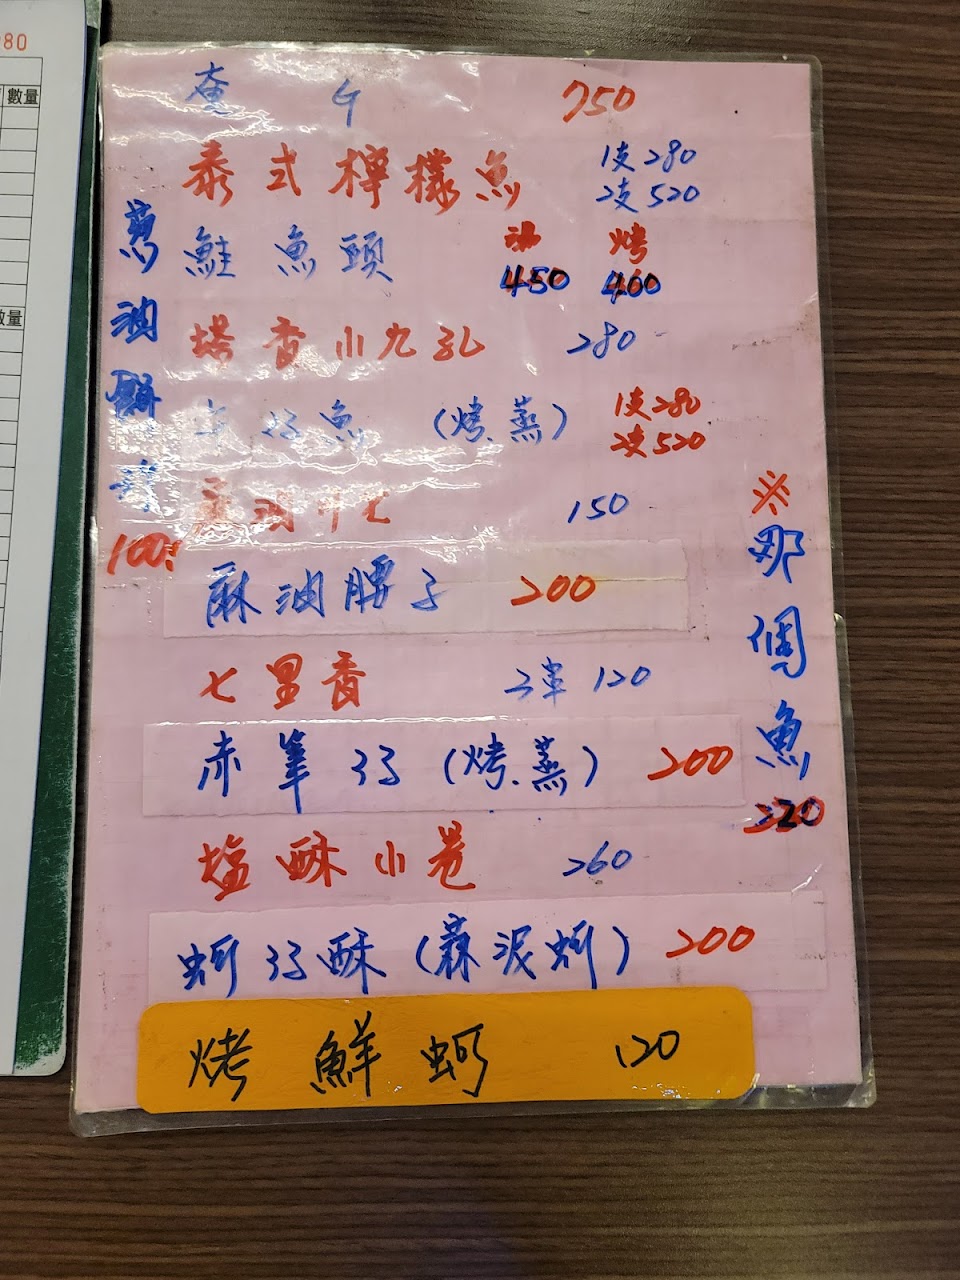 980
數量
數量
750
泰式檸檬魚 1支280
2支520
鮭魚頭 油 烤
450 400
塔香小九孔 280
午仔魚（烤.蒸） 1支280
2支520
150
麻油腰子 200
七里香 2串120
赤筆仔（烤.蒸） 200
塩酥小卷 260
蚵仔酥（蒜泥蚵） 200
烤鮮蚵 120
100
※那個魚
220